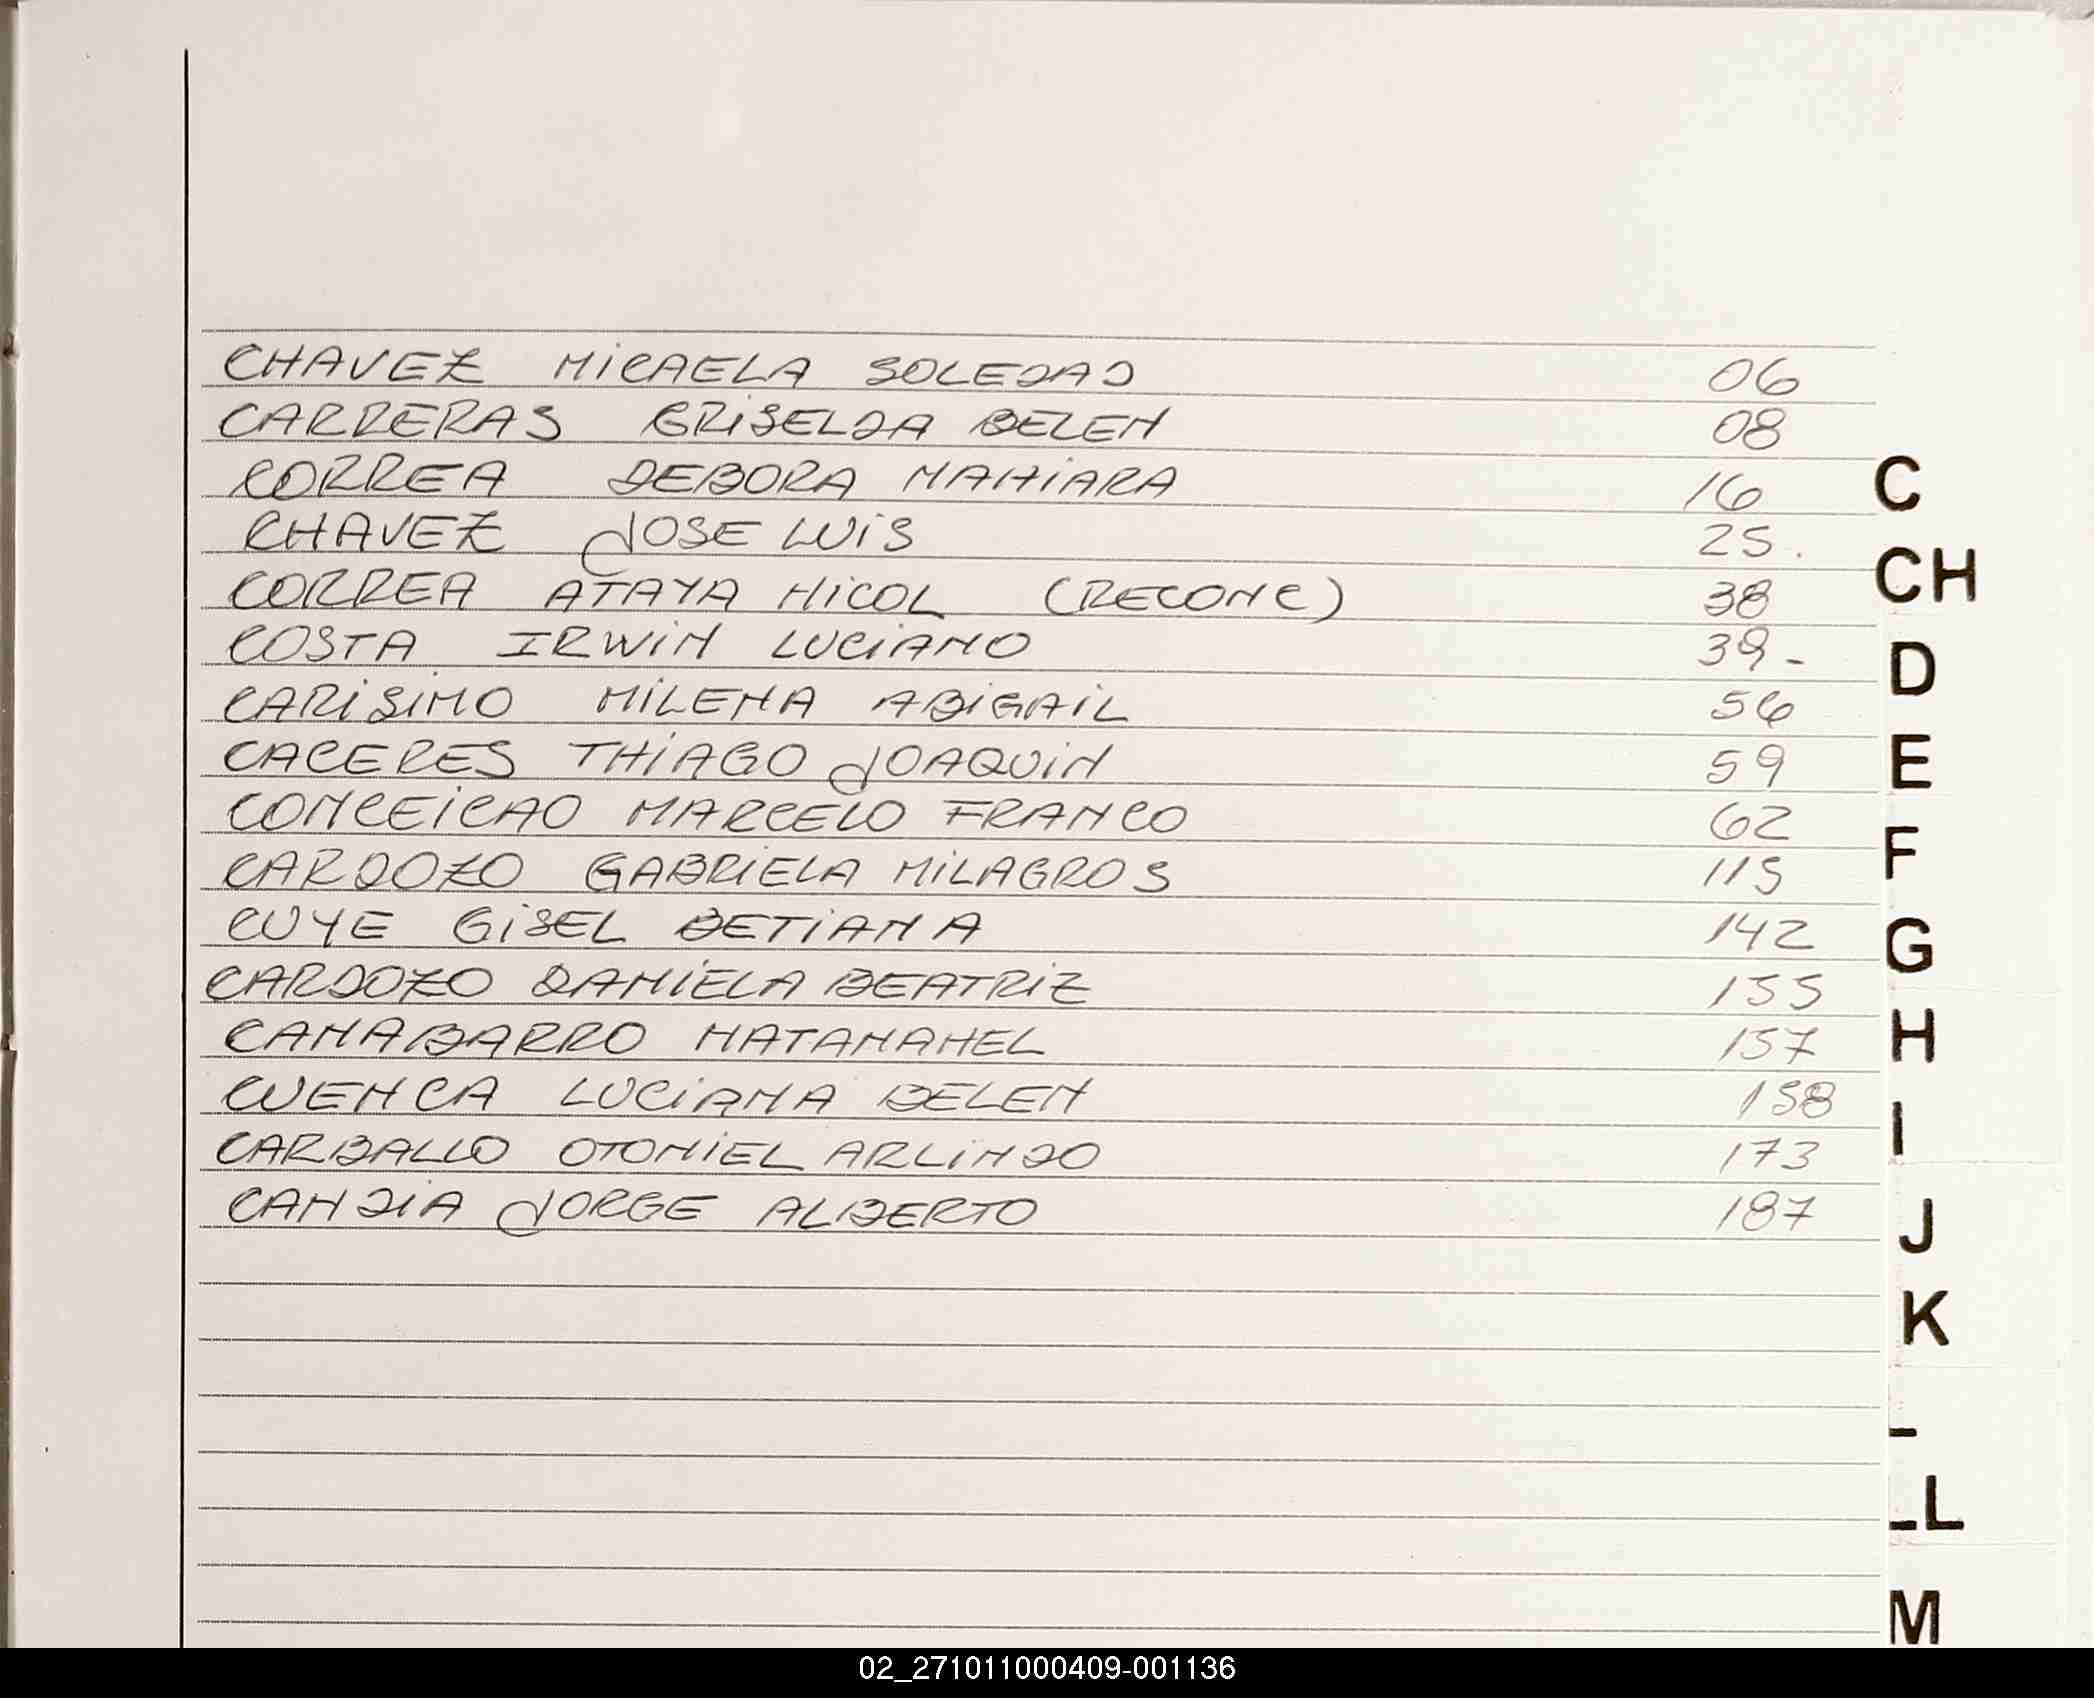 CHAVEZ MICAELA SOLEDAD 06
CARRERAS GRISELDA BELEN 08
CORREA DEBORA NAHIARA 16
CHAVEZ JOSE LUIS 25.
CORREA ATAYA NICOL (RECONC) 38
COSTA IRWIN LUCIANO 39-
CARISIMO MILENA ABIGAIL 56
CACERES THIAGO JOAQUIN 59
CONCEICAO MARCELO FRANCO 62
CARDOZO GABRIELA MILAGROS 115
CUYE GISEL BETIANA 142
CARDOZO DANIELA BEATRIZ 155
CANABARRO NATANAHEL 157
CUENCA LUCIANA BELEN 158
CARBALLO OTONIEL ARLINDO 173
CANDIA JORGE ALBERTO 187
C
CH
D
E
F
G
H
I
J
K
L
M
02_271011000409-001136